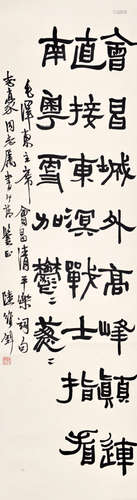 會昌城外高峰顛連
直接東溟戰士指看
南粵更加鬱〻蔥〻
毛澤東主席會昌清平樂詞句
同志屬書 正 陸維釗